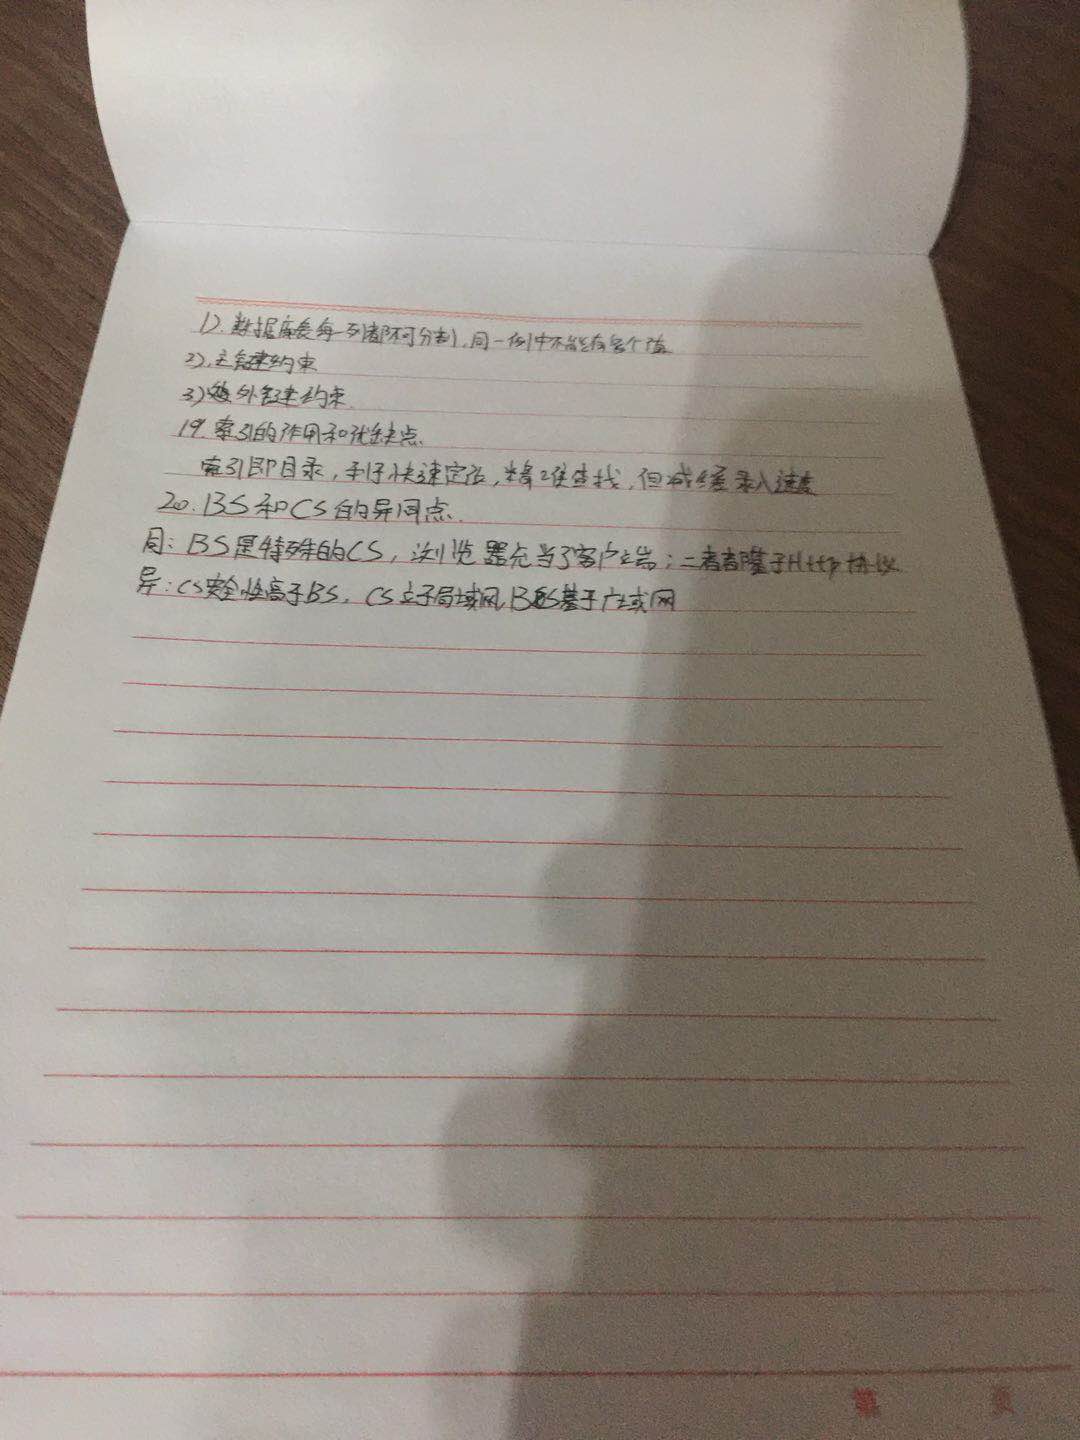 1). 数据库表每一列都不可分割,同一列中不能有多个值
2). 主键约束
3) 外键约束
19. 索引的作用和优缺点.
索引即目录,利于快速定位,精准查找,但减缓录入速度
20. BS和CS的异同点.
同: BS是特殊的CS, 浏览器充当了客户端; 二者都基于Http协议
异: CS安全性高于BS, CS 立于局域网, BS基于广域网
第 页